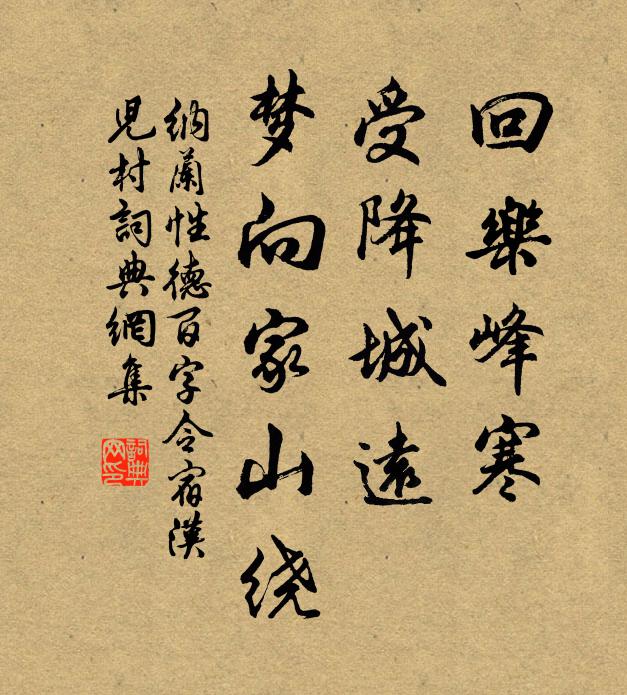 回樂峰寒
受降城遠
梦向家山绕
納蘭性德百字令宿漢
兒村詞典網集
詞典网印